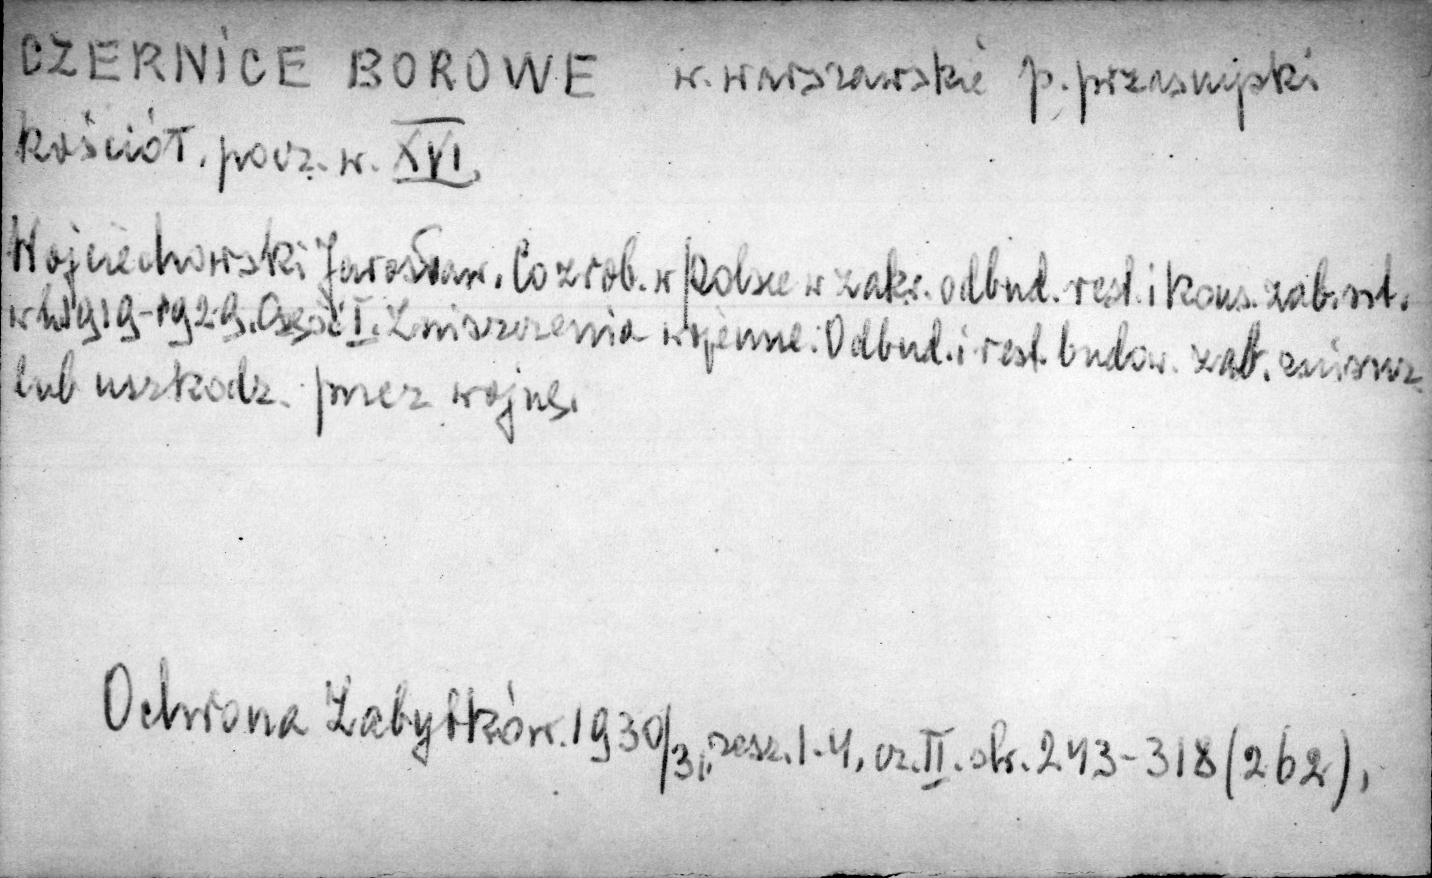 CZERNICE BOROWE w. warszawskie p. przasnyski
kościół, pocz. w. XVI.
Wojciechowski Jarosław. Co zrob. w Polsce w zakr. odbud. rest. i kons. zab. szt.
w l. 1919-1929. Część I. Zniszczenia wojenne. Odbud. i rest. budow. zab. zniszcz
lub uszkodz. przez wojnę.
Ochrona Zabytków. 1930/31, zesz. 1-4, cz. II. str. 243-318 (262),